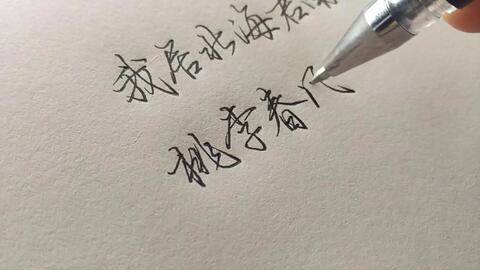 我居北海君
桃李春